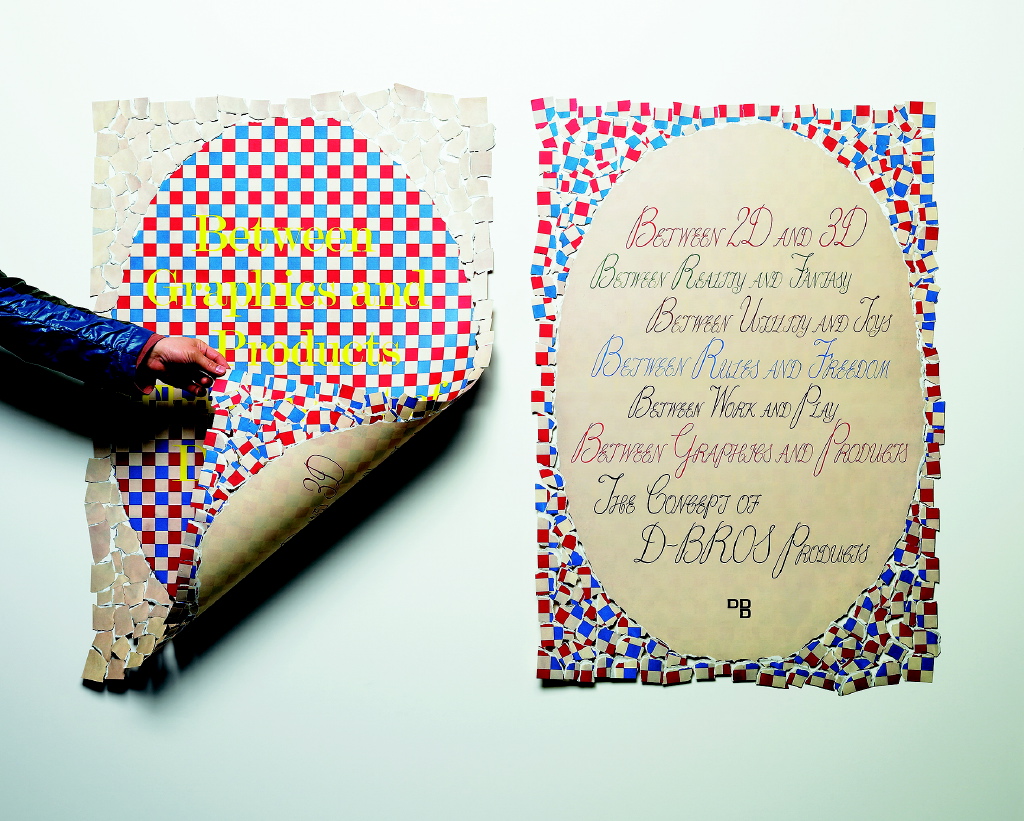 Between
Graphics and
Products
3D
Between 2D and 3D
Between Reality and Fantasy
Between Utility and Toys
Between Rules and Freedom
Between Work and Play
Between Graphics and Products
The Concept of
D-BROS Products
DB